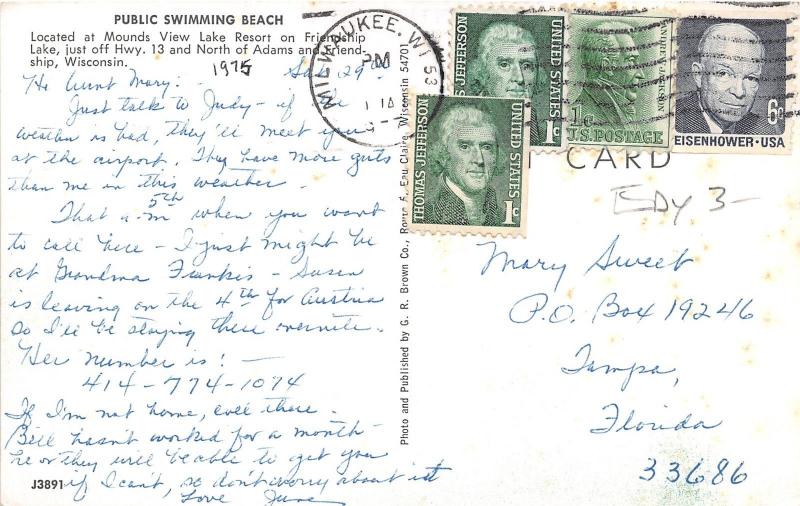 PUBLIC SWIMMING BEACH
Located at Mounds View Lake Resort on Friendship
Lake, just off Hwy. 13 and North of Adams and Friend-
ship, Wisconsin.
1975
29
Hi Aunt Mary:
Just talk to Judy - if the
weather is bad, they'll meet you
at the airport. They have more guts
than me in this weather.
That a.m 5th when you want
to call here - I just might be
at Grandma Frankis - Susan
is leaving on the 4th for Austria
so I'll be staying there overnite.
Her number is: -
414-774-1074
If I'm not home, call there.
Bill hasn't worked for a month -
he or they will be able to get you
if I can't, so don't worry about it
Love June
J3891
Photo and Published by G. R. Brown Co., Route 5, Eau Claire, Wisconsin 54701
MILWAUKEE, WI 53
PM
THOMAS JEFFERSON
UNITED STATES
1c
S JEFFERSON
UNITED STATES
1c
ANDREW JACKSON
1c
U.S. POSTAGE
6c
EISENHOWER·USA
CARD
EDY 3-
Mary Sweet
P.O. Box 19246
Tampa,
Florida
33686